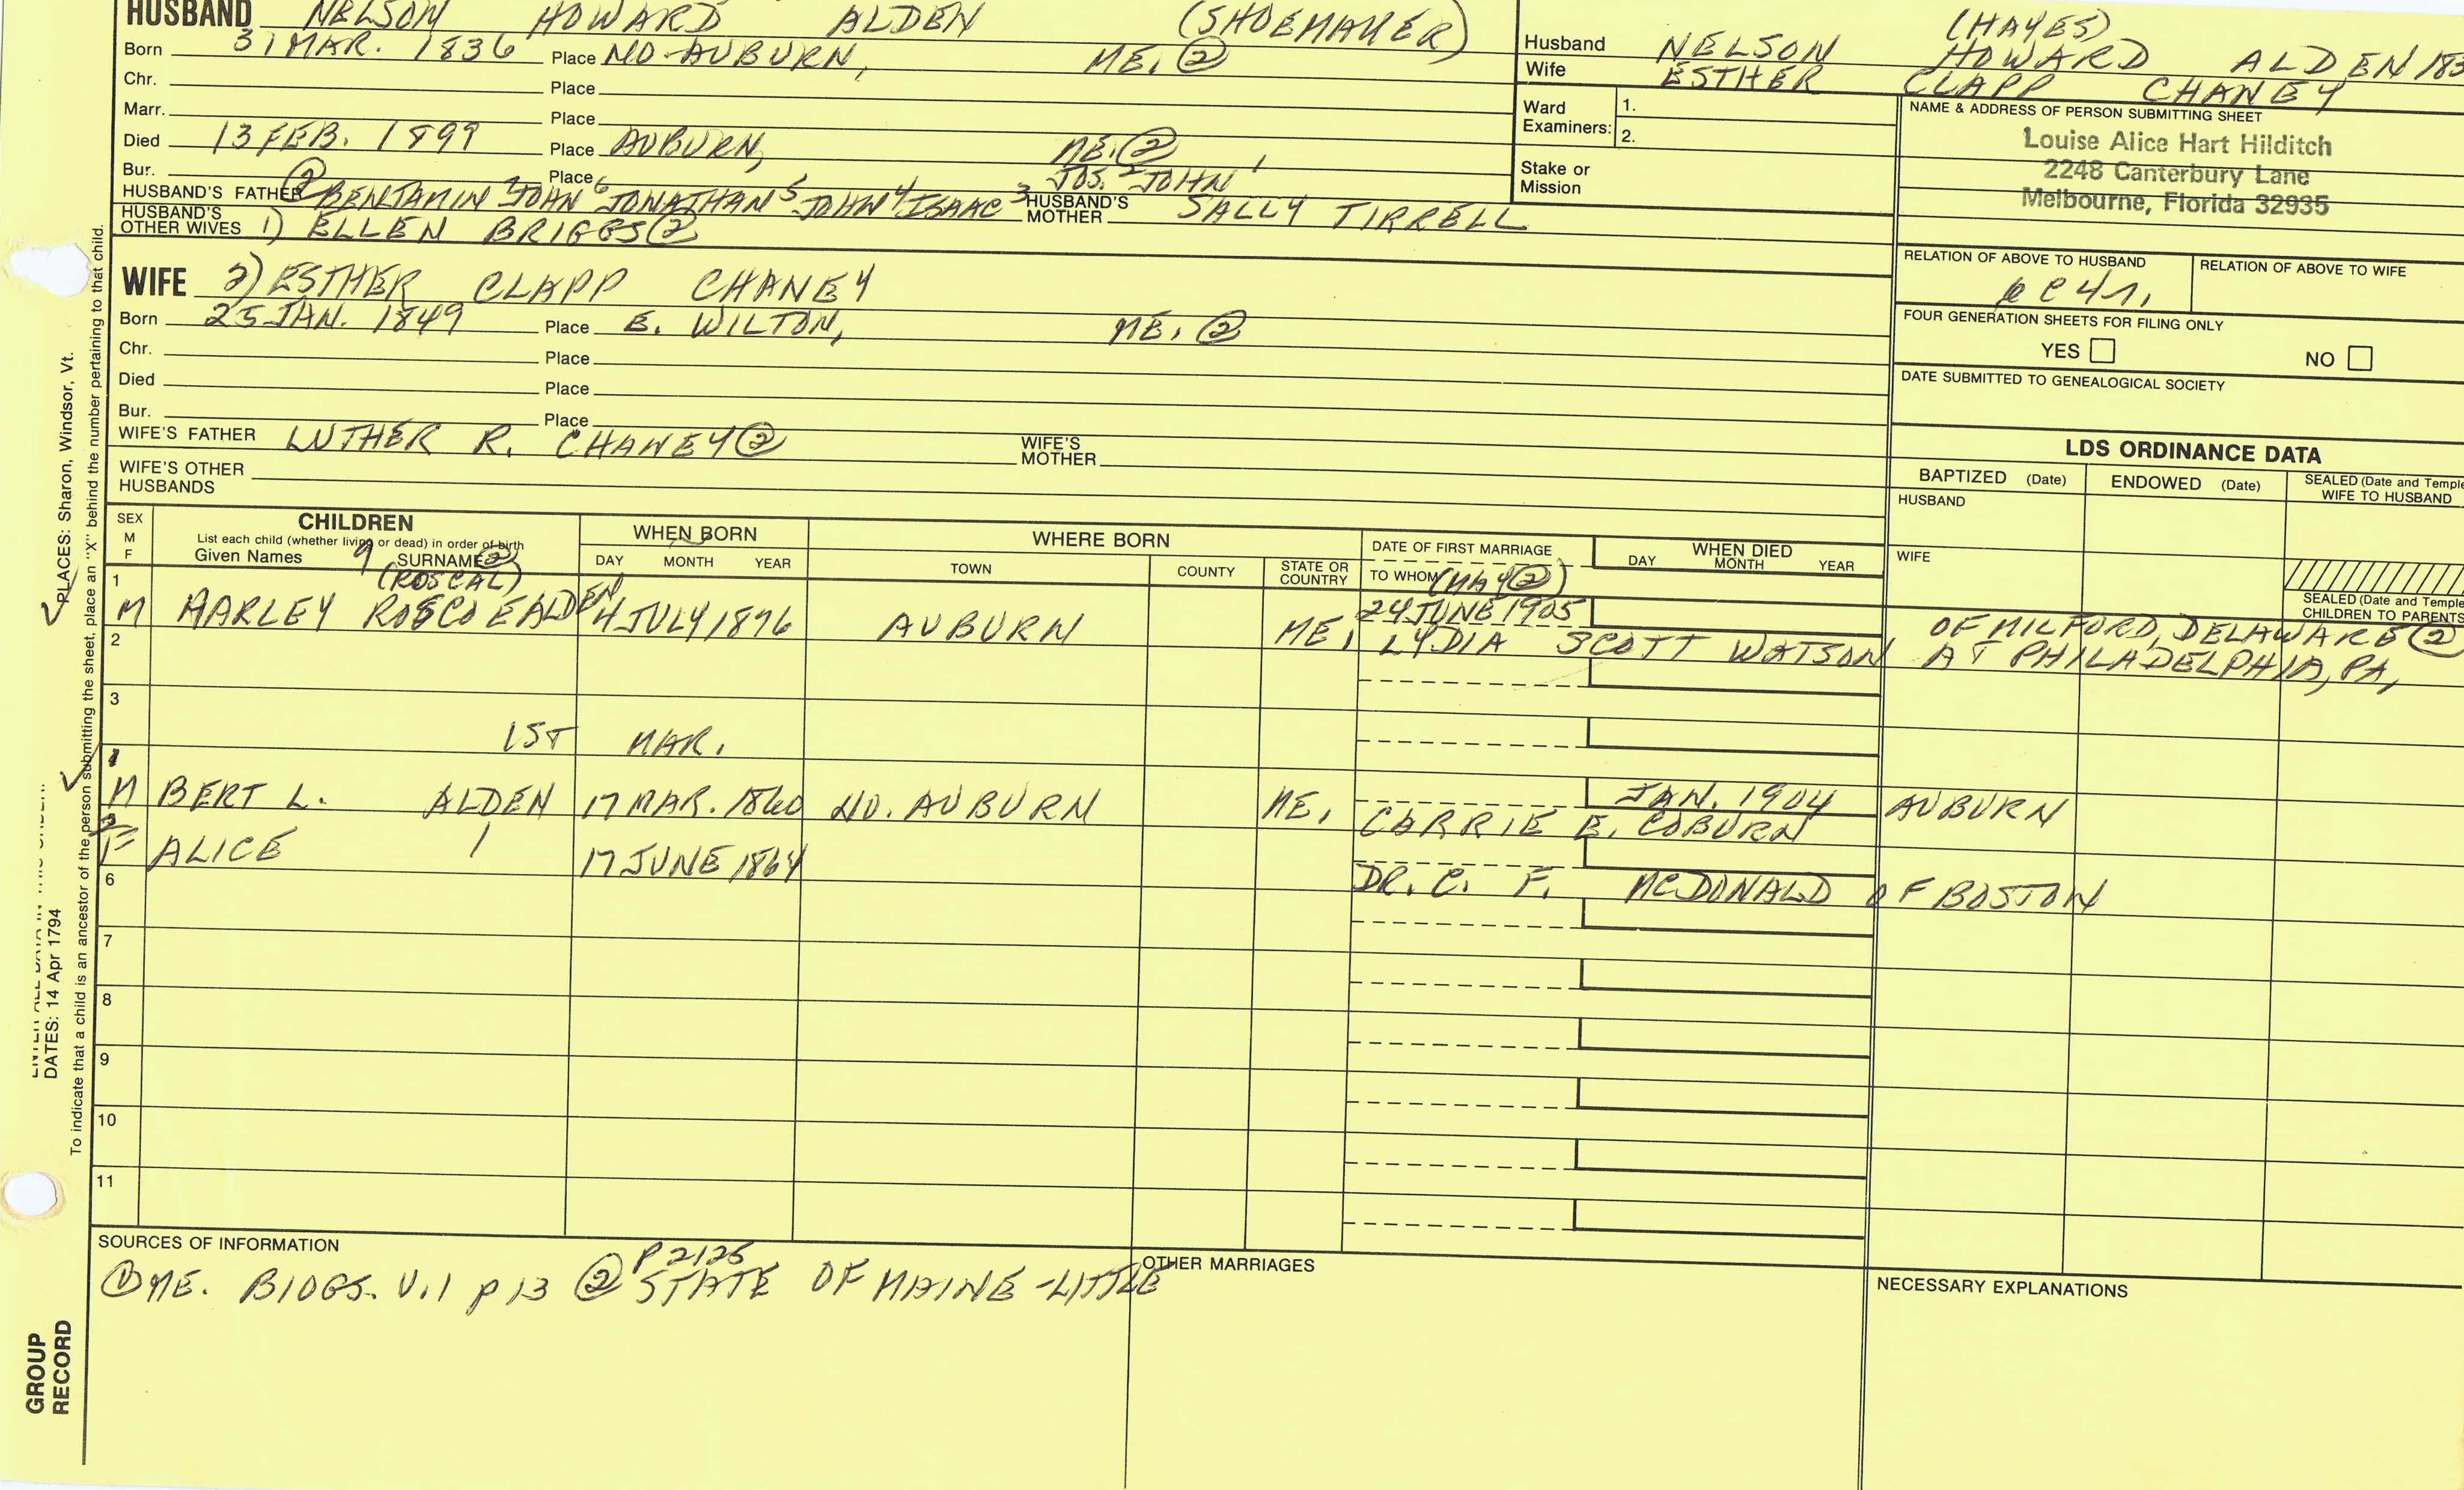 HUSBAND NELSON HOWARD ALDEN (SHOEMAKER)
Born 31 MAR. 1836 Place NO-AUBURN, ME. ②
Chr. Place
Marr. Place
Died 13 FEB. 1899 Place AUBURN, ME. ②
Bur. Place JOS.2 JOHN1
HUSBAND'S FATHER ② BENJAMIN7 JOHN6 JONATHAN5 JOHN4 ISAAC3 HUSBAND'S MOTHER SALLY TIRRELL
HUSBAND'S OTHER WIVES 1) ELLEN BRIGGS ②
WIFE 2) ESTHER CLAPP CHANEY
Born 25 JAN. 1849 Place E. WILTON, ME. ②
Chr. Place
Died Place
Bur. Place
WIFE'S FATHER LUTHER R. CHANEY ② WIFE'S MOTHER
WIFE'S OTHER HUSBANDS
(HAYES)
Husband NELSON HOWARD ALDEN 183
Wife ESTHER CLAPP CHANEY
Ward Examiners: 1.
2.
Stake or Mission
NAME & ADDRESS OF PERSON SUBMITTING SHEET
Louise Alice Hart Hilditch
2248 Canterbury Lane
Melbourne, Florida 32935
RELATION OF ABOVE TO HUSBAND RELATION OF ABOVE TO WIFE
FOUR GENERATION SHEETS FOR FILING ONLY
YES NO
DATE SUBMITTED TO GENEALOGICAL SOCIETY
LDS ORDINANCE DATA
BAPTIZED (Date) ENDOWED (Date) SEALED (Date and Temple
WIFE TO HUSBAND
HUSBAND
WIFE
SEALED (Date and Temple
CHILDREN TO PARENTS
SEX
M
F
CHILDREN
List each child (whether living or dead) in order of birth
Given Names 9 SURNAME ②
WHEN BORN
DAY MONTH YEAR
WHERE BORN
TOWN COUNTY STATE OR COUNTRY
DATE OF FIRST MARRIAGE
TO WHOM (MAY ②)
WHEN DIED
DAY MONTH YEAR
1 (ROSCAL) 24 JUNE 1905
M HARLEY ROSCOE ALDEN 4 JULY 1876 AUBURN ME. LYDIA SCOTT WATSON OF MILFORD, DELAWARE ②
AT PHILADELPHIA, PA.
2
3
1ST MAR.
1
M BERT L. ALDEN 17 MAR. 1860 NO. AUBURN ME. JAN. 1904 AUBURN
CARRIE E. COBURN
2
F ALICE 17 JUNE 1864
DR. C. F. MCDONALD OF BOSTON
6
7
8
9
10
11
SOURCES OF INFORMATION
① ME. BIOGS. V.1 P 13 ② P 2125 STATE OF MAINE - LITTLE
OTHER MARRIAGES
NECESSARY EXPLANATIONS
PLACES: Sharon, Windsor, Vt.
DATES: 14 Apr 1794
To indicate that a child is an ancestor of the person submitting the sheet, place an "X" behind the number pertaining to that child.
GROUP
RECORD